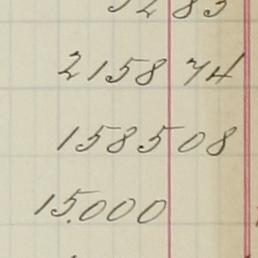 2158 74
1585 08
15.000